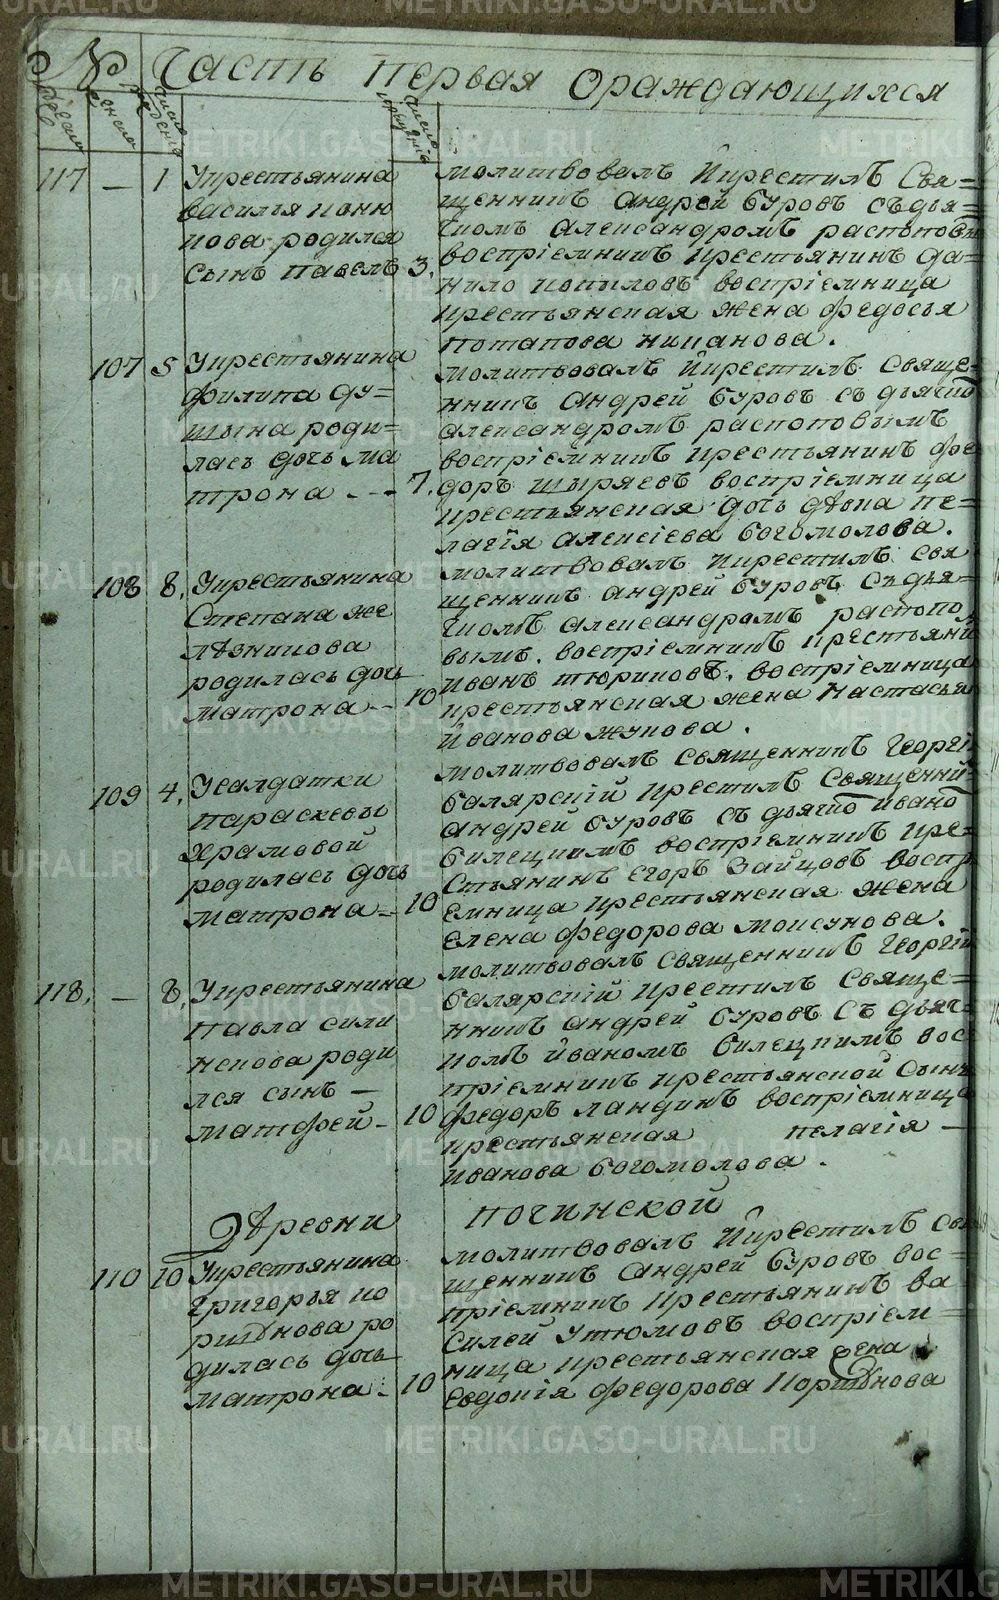 METRIKI.GASO-URAL.RU
№ Часть Первая Ораждающихся
117 — 1 Укрестьянина
Василья Коню
кова родился
сынъ Павелъ 3.
молитвовалъ Йкрестилъ Свя=
щенникъ Андрей Буровъ съдья=
чкомъ Александромъ распоповы
воспріемникъ крестьянинъ да=
нило копыловъ воспріемница
крестьянская жена федосья
потапова ницанова.
107 5 Укрестьянина
Филипа Ду=
шына роди=
лась дочь ма
трона - - 7.
молитвовалъ Йкрестилъ Свяще=
нникъ Андрей Буровъ съ дьячко
александромъ распоповымъ
воспріемникъ крестьянинъ фе
доръ шыряевъ воспріемница
крестьянская дочь дѣвка пе=
лагія алексіева богомолова.
108 8. Укрестьянина
Степана же
лѣзникова
родилась дочь
матрона — 10
молитвовалъ Йкрестилъ свя
щенникъ андрей Буровъ Съдья=
чкомъ александромъ распопо
вымъ. воспріемникъ крестьяни
иванъ тюриковъ. воспріемница
крестьянская жена Настасья
Йванова жукова.
109 4. Усалдатки
параскевы
Храмовой
родилась дочь
матрона — 10
молитвовалъ священникъ Георгій
балярскій крестилъ Священни
андрей буровъ съ дьячко ивано
билецкимъ воспріемникъ кре=
стьянинъ егоръ Зайцовъ воспрі
емница крестьянская жена
елена федорова моисунова.
118. — 8. Укрестьянина
Павла сили
нскова роди
лся сынъ —
матфей - 10
молитвовалъ священникъ Георгій
балярскій крестилъ свяще=
нникъ андрей буровъ съ дьяч=
комъ йваномъ билецкимъ вос=
пріемникъ крестьянской сынъ
федоръ ландикъ воспріемница
крестьянская пелагія —
иванова богомолова.
Дѣревни починской
110 10 Укрестьянина
григорья ко
ршунова ро
дилась дочь
матрона. 10
молитвовалъ Йкрестилъ свя
щенникъ андрей Буровъ вос=
пріемникъ крестьянинъ ва
силей утюмовъ воспріем=
ница крестьянская жена
евдокія федорова Коршунова